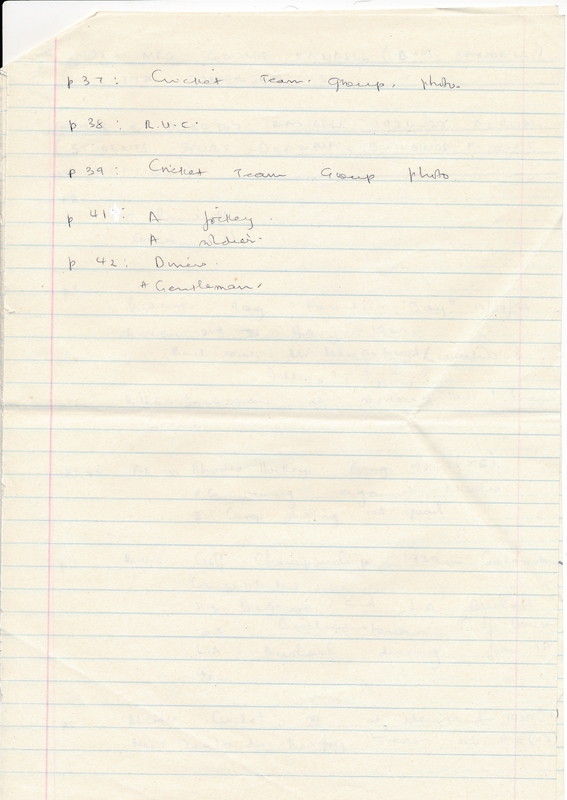 p 37 : Cricket Team. group. photo.
p 38 : R.U.C.
p 39 : Cricket Team Group photo
p 41 : A jockey.
A soldier.
p 42 :
A Gentleman.